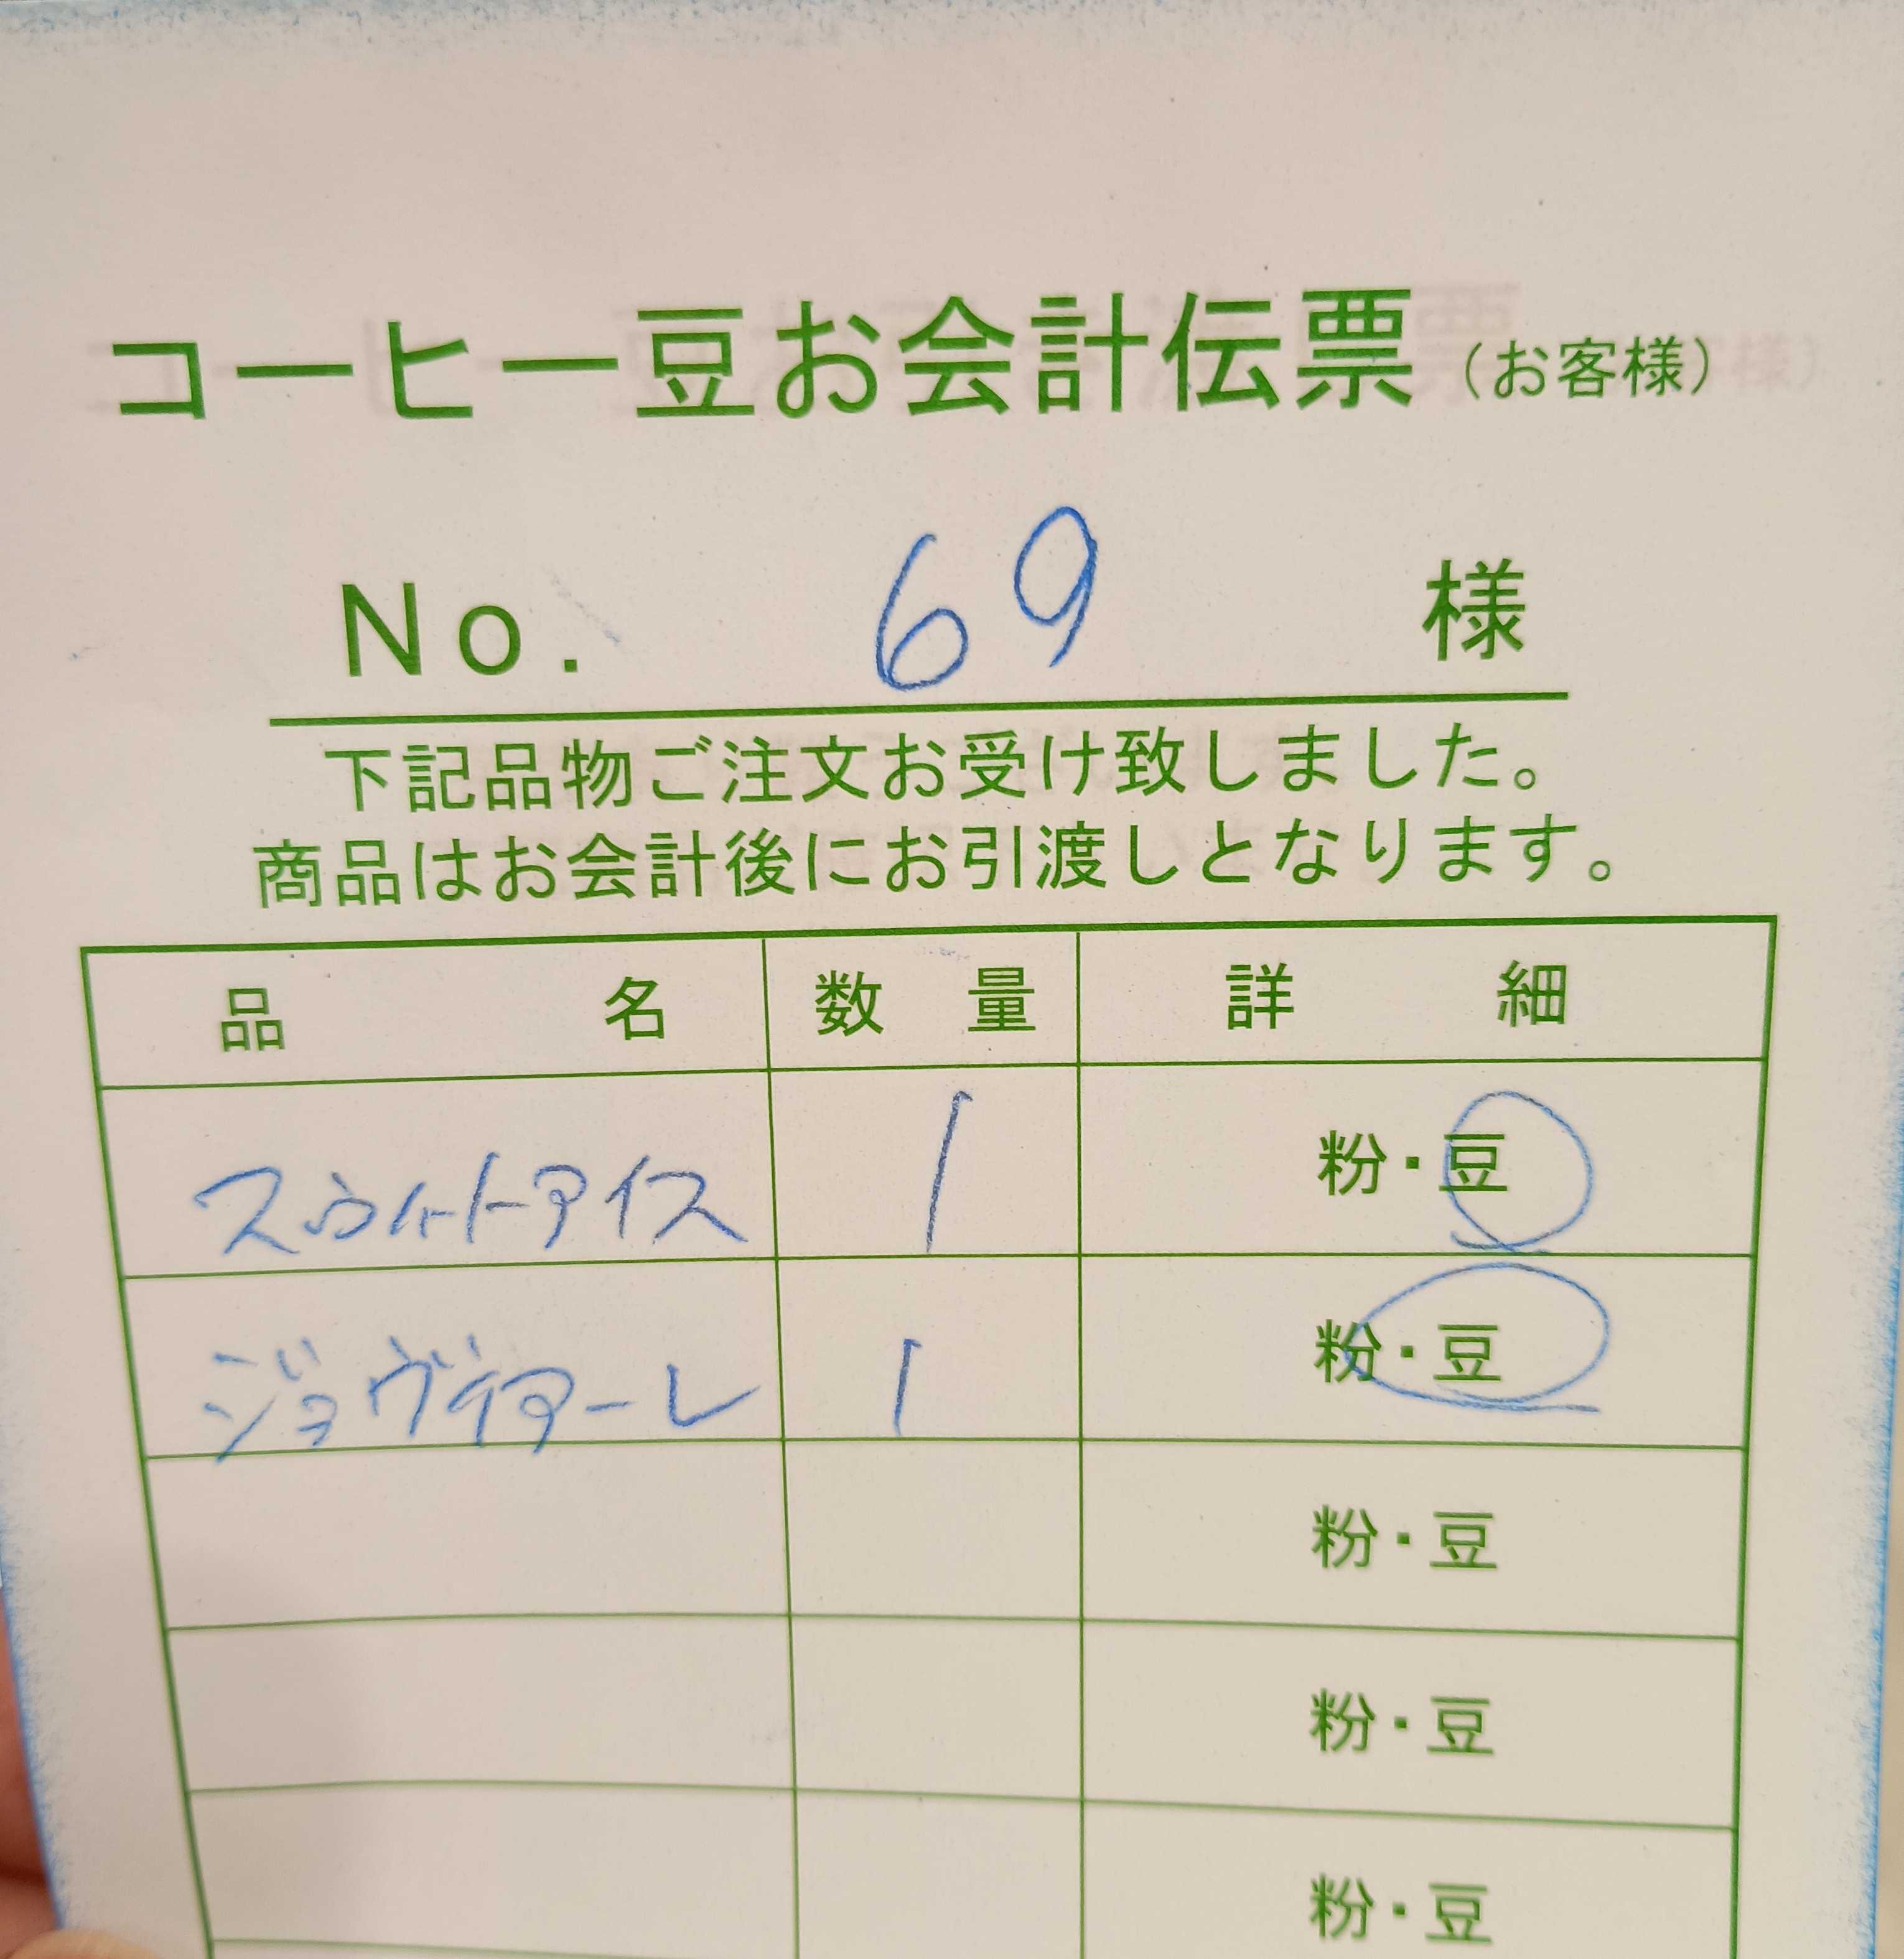 コーヒー豆お会計伝票（お客様）
No. 69 様
下記品物ご注文お受け致しました。
商品はお会計後にお引渡しとなります。
品名 数量 詳細
スウィートアイス 1 粉・豆
ジョヴィアーレ 1 粉・豆
粉・豆
粉・豆
粉・豆